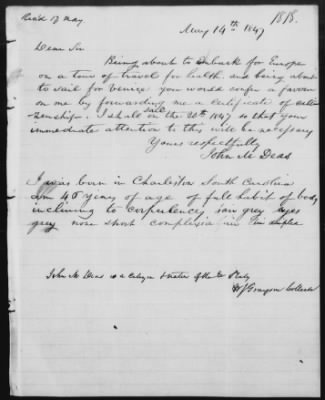 Rec'd 17 May
1818.
May 14th 1847
Dear Sir
Being about to Embark for Europe
on a tour of travel for health and being about
to sail for Venice you would confer a favour
on me by forwarding me a certificate of citi
zenship. I shall sail on the 20th 1847 so that your
immediate attention to this will be necessary
Yours respectfully
John M Deas
I was born in Charleston South Carolina
am 45 years of age of full habit of body
inclining to corpulency iron grey
grey nose short complexion
John M Deas is a citizen & native of the U States
W J Grayson Collector